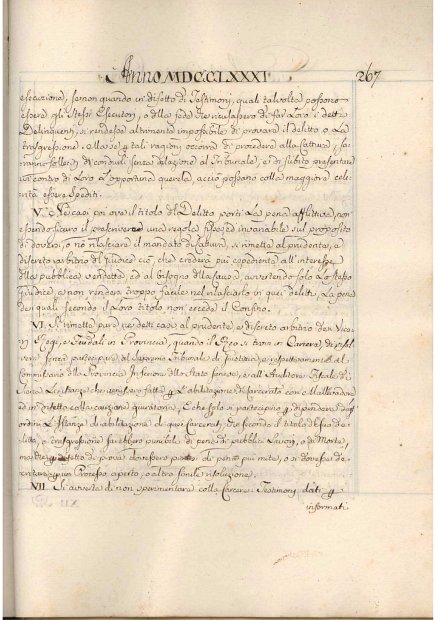 Anno MDCCLXXXI 267
esecuzione, se non quando in difetto di Testimonj, quali talvolta possono
essere gli stessi Esecutori, o della fede che ricusassero di far Loro i detti
Delinquenti, si rendesse altrimenti impossibile di provare il delitto o La
trasgressione, e alla se tali ragioni occorra di procedere alla Cattura,
solleciti di condurli senza dilazione al Tribunale, e di subito presentare
ivi contro di Loro L'opportuna querela, acciò possano colla maggiore cele
rità essere Spediti.
V. Ne casi poi ove il titolo del Delitto porti La pena afflittiva, non
essendo sicuro il prescrivere una regola fissa ed invariabile sul proposito
di doversi, o nò rilasciare il mandato di Cattura, si rimette al prudente, e
discreto arbitrio del Giudice ciò, che crederà più espediente all'interesse
della pubblica vendetta, ed al bisogno della causa, avvertendo solo Lo stesso
Giudice a non rendersi troppo facile nel rilasciarlo in quei delitti, La pena
dei quali secondo il Loro titolo non ecceda il Confino.
VI. Si rimette pure ne detti casi al prudente, e discreto arbitrio dei Vica
rj Regj, e Feudali in Provincia, quando il Reo si trova in Carcere, di
senza partecipare al Supremo Tribunale di Giustizia, e respettivamente al
Commissario della Provincia Inferiore dello Stato Senese, e all'Auditore Fiscale di
Siena Le istanze che venissero fatte per L'abilitazione di Carcerato con Mallevadore
ed in difetto colla cauzione giuratoria, E che solo si partecipino per dipendere dagl'
ordini Le Istanze di abilitazione di quei Carcerati, che secondo il titolo del suo de
litto, o trasgressione sarebbero punibili di pena di pubblici Lavori, o di Morte,
ma che per difetto di prova dovessero punirsi di pena più mite, o si dovesse de
cretare un Processo aperto, o altra simile risoluzione.
VII. Si avverta di non sperimentare colla Carcere i Testimonj dati per
informati